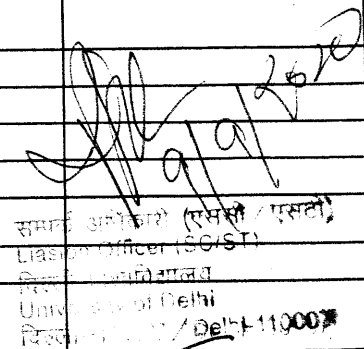 9/9/2010
सम्पर्क अधिकारी (एससी / एसटी)
Liason Officer (SC/ST)
विश्वविद्यालय
University of Delhi
/ Delhi-110007